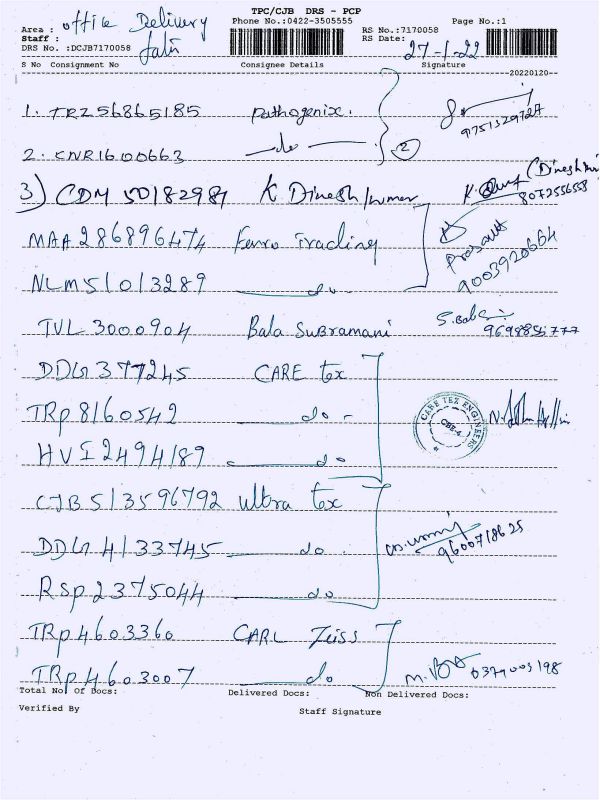 TPC/CJB DRS - PCP
Area : office Delivery Phone No.:0422-3505555 Page No.:1
Staff : RS No.:7170058
DRS No. :DCJB7170058 RS Date: 27-1-22
S No Consignment No Consignee Details Signature
20220120
1. TRZ56865185 pathogenix. 9751329727
2. KNR1600663 do 2
3) CDM 50182989 K Dineshkumar K. (Dinesh 807255658
MAA 286896474 Ferro Trading Prasanth 9003920664
NLM51013289 do
TVL 3000904 Bala Subramani S. Bala 9698856777
DDG 377245 CARE tex
TRp 8160542 do CARE TEX ENGINEERS CBE-4
HVI 2494189 do
CJB 513596792 ultra tex
DDG 4133745 do 9600718625
RSp 2375044 do
TRp 4603360 CARL Zeiss
TRp 4603007 do
Total No. Of Docs: Delivered Docs: Non Delivered Docs:
Verified By Staff Signature